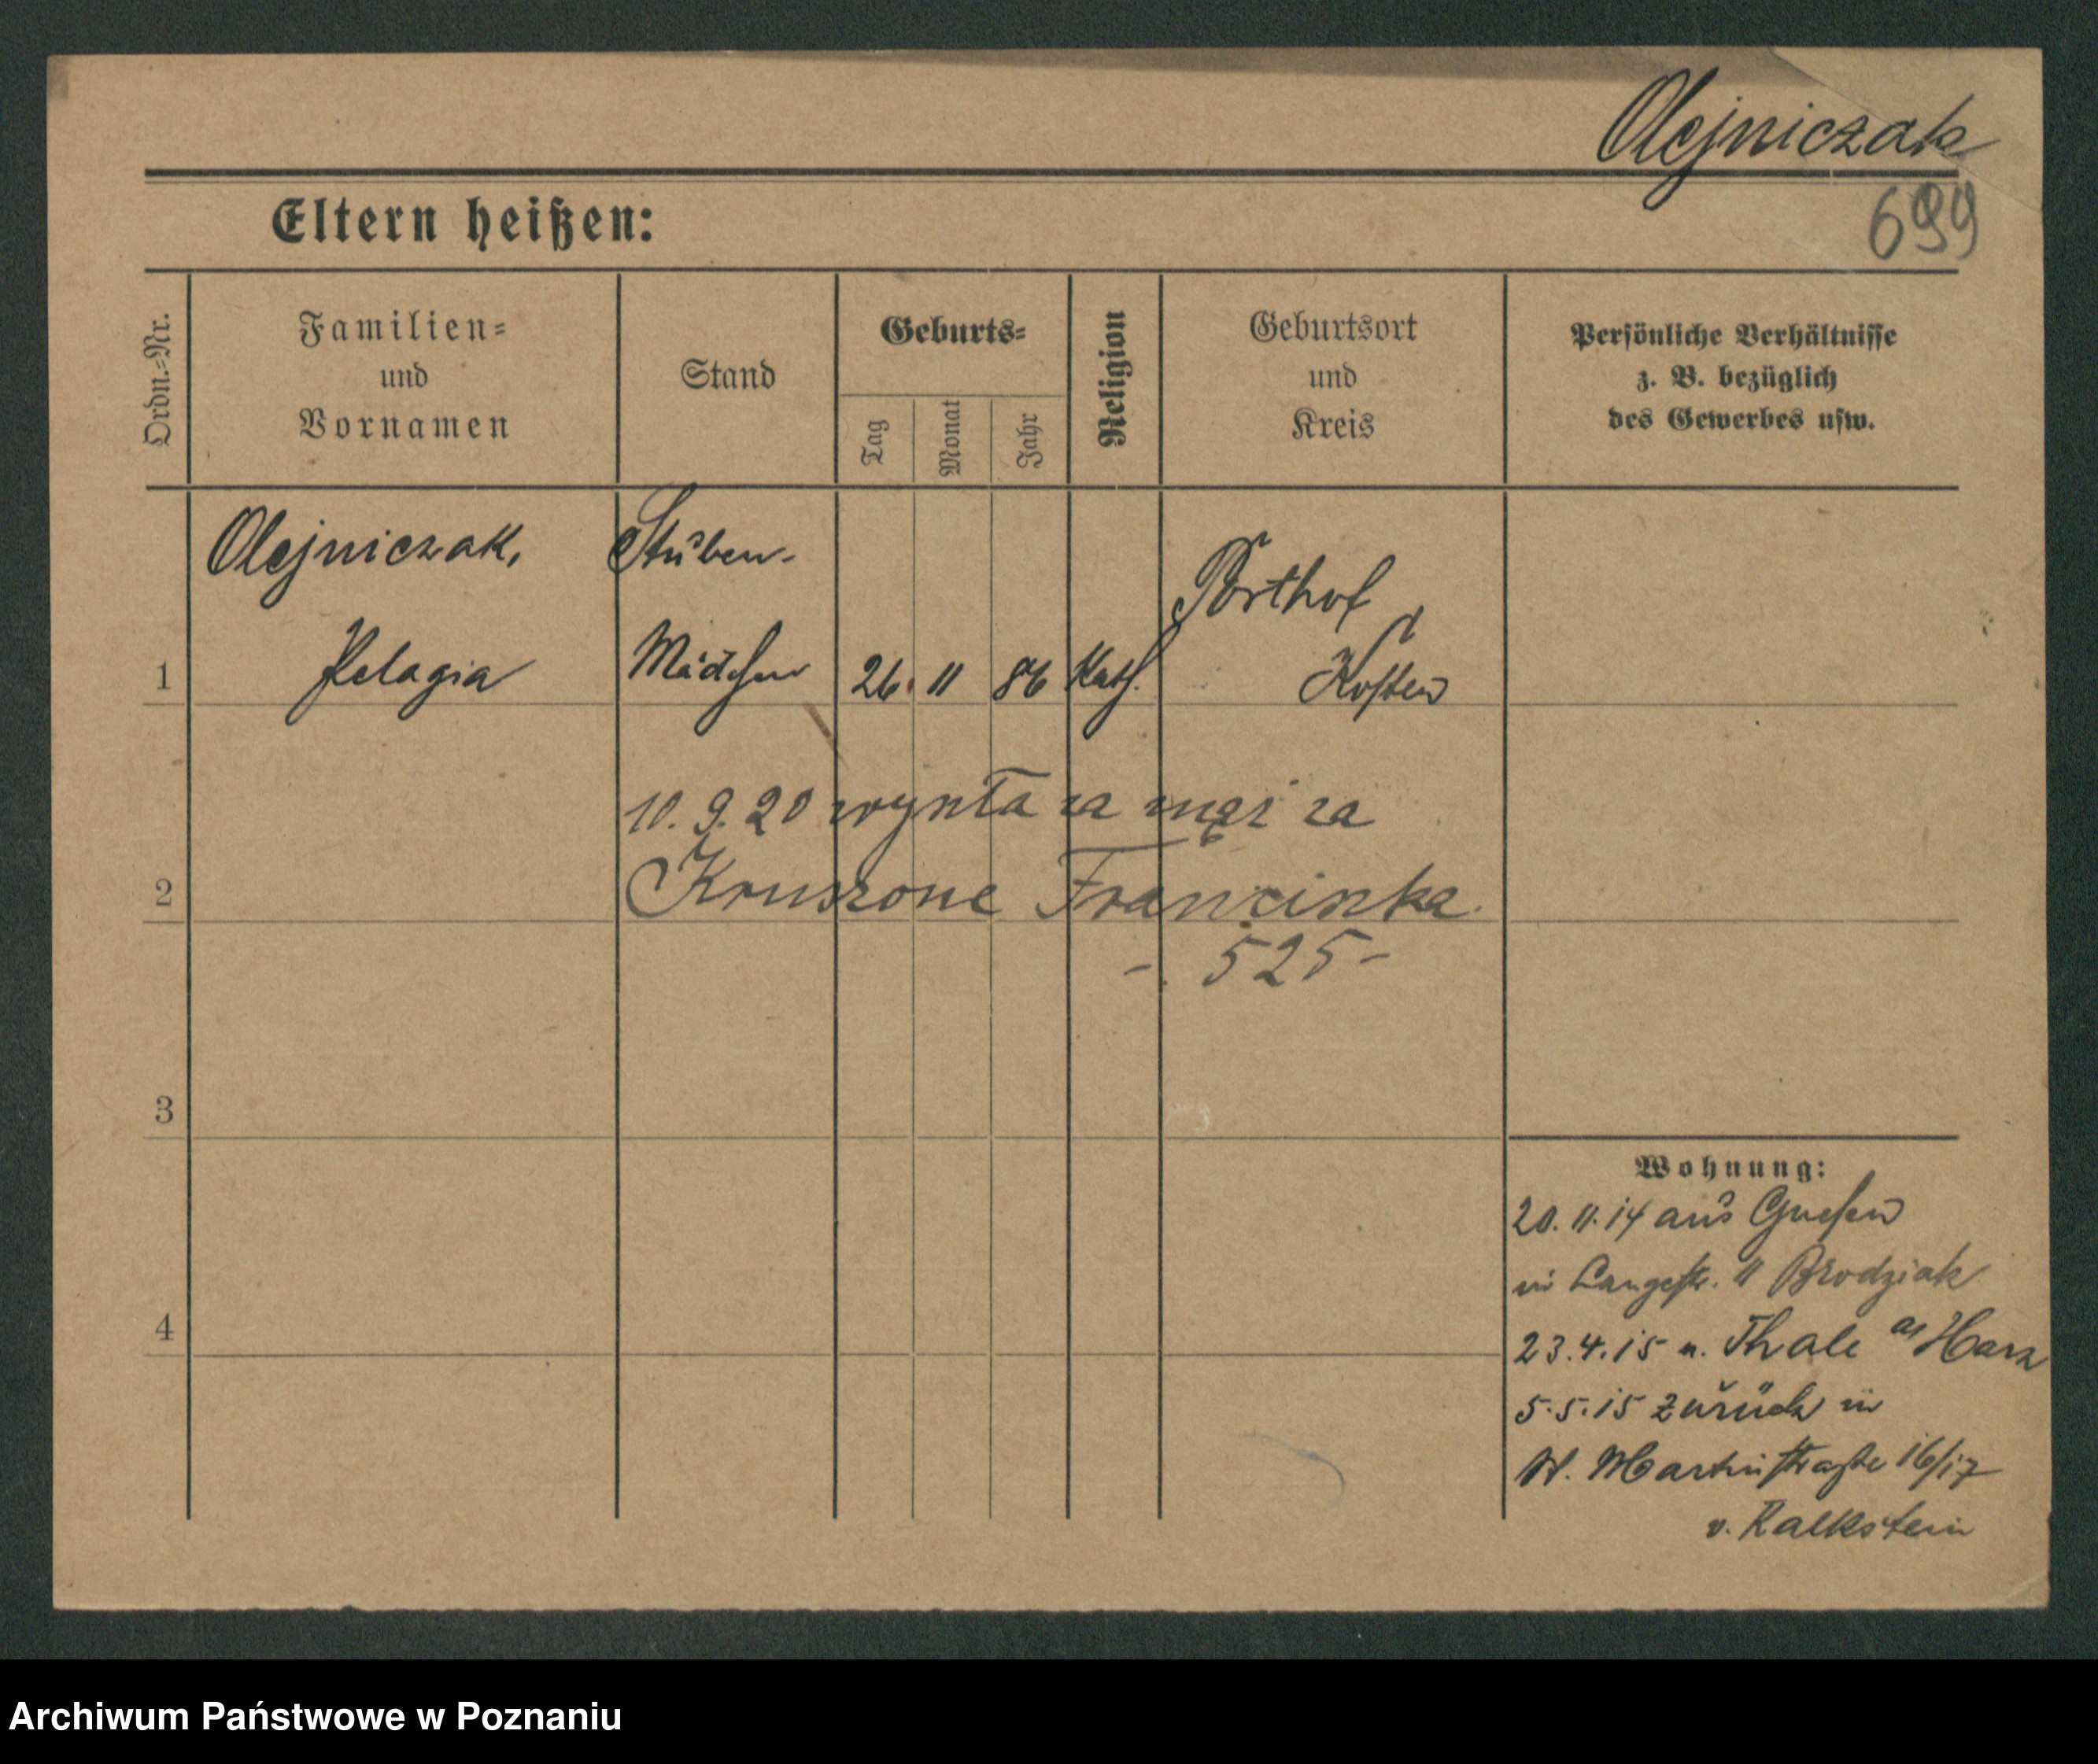 Olejniczak
699
Eltern heißen:
Ordn.-Nr.
Familien-
und
Vornamen
Stand
Geburts-
Tag
Monat
Jahr
Religion
Geburtsort
und
Kreis
Persönliche Verhältnisse
z. B. bezüglich
des Gewerbes usw.
Olejniczak,
Pelagia
Stuben-
Mädchen
1
26. 11 86 Kath.
Kosten
10. 9. 20 wyszła za mąż za
Franciszka
2
- 525 -
3
Wohnung:
20. 11. 14 aus Gnesen
in Langestr. 11 Brodziak
4
23. 4. 15 n. Thale a/ Harz
5. 5. 15 zurück in
St. Martinstraße 16/17
v. Kalkstein
Archiwum Państwowe w Poznaniu